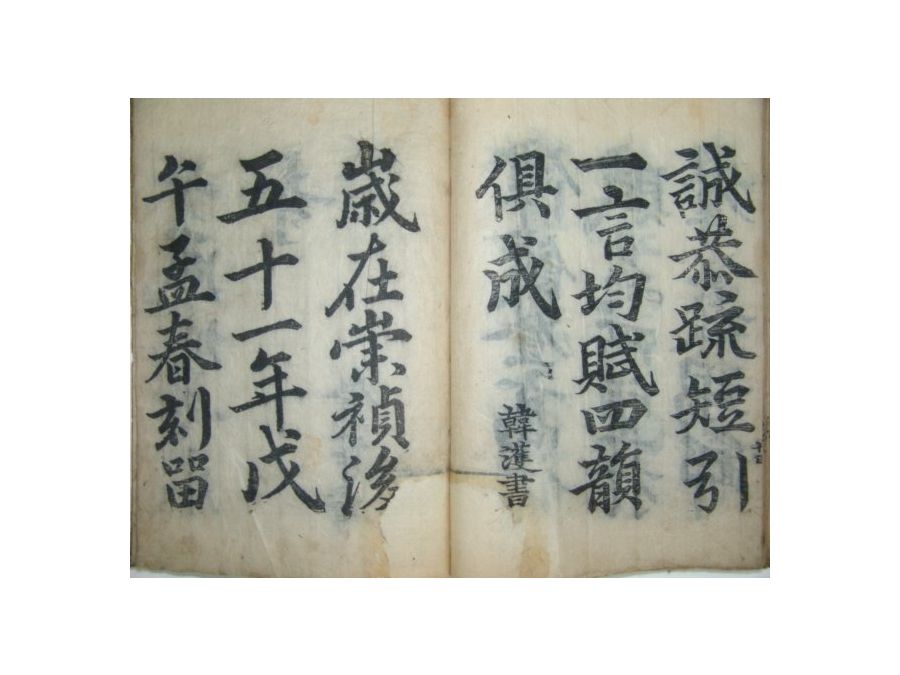 誠恭疏短引
一言均賦四韻
俱成
韓濩書
歲在崇禎後
五十一年戊
午孟春刻留